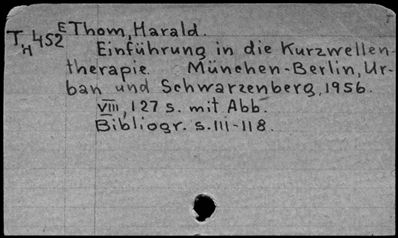 TH452 E Thom, Harald.
Einführung in die Kurzwellen-
therapie. München-Berlin, Ur-
ban und Schwarzenberg, 1956.
VIII, 127 s. mit Abb.
Bibliogr. s.111-118.